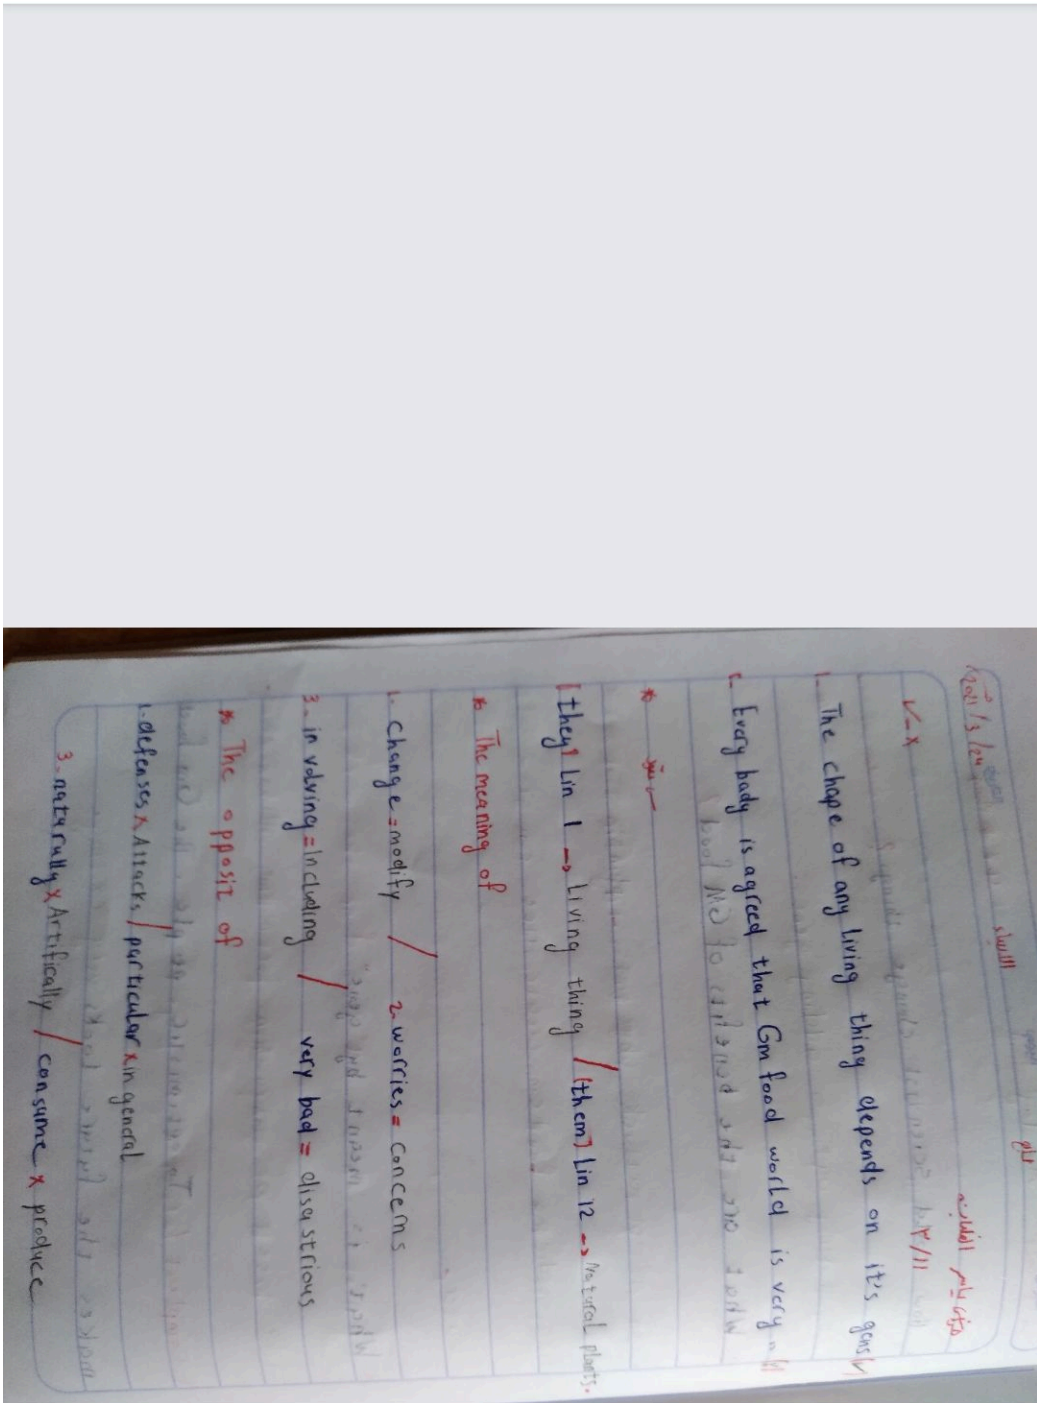 2021/3/24
الثلاثاء
✓ - x
1. The chape of any living thing depends on it's gens/✓
2. Every bady is agreed that Gm food world is very
[they] Lin 1 → Living thing / [them] Lin 12 → Natural plants.
* The meaning of
1. Change = modify / 2. worries = Concerns
3. in volving = Including / very bad = disastrious
* The opposit of
1. defenses x Attacks / particular x in general
3. naturally x Artifically / consume x produce